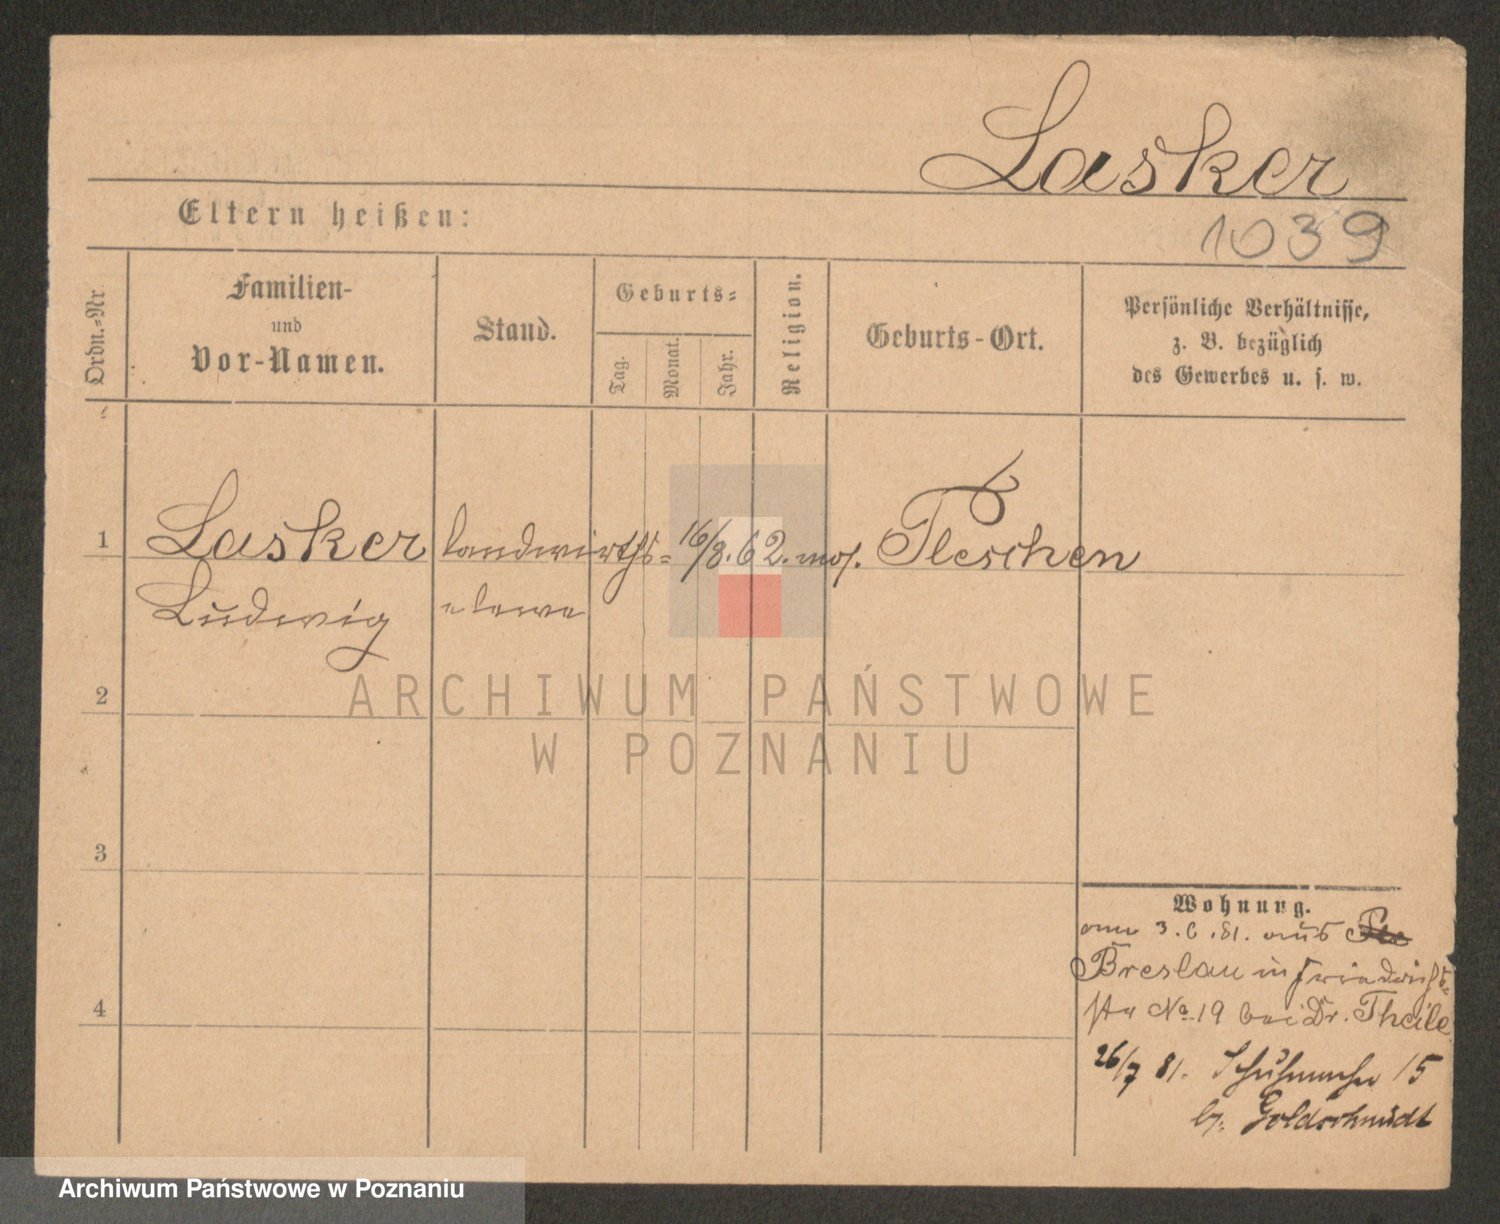 Lasker
1039
Eltern heißen:
Ordn.-Nr.
Familien-
und
Vor-Namen.
Stand.
Geburts-
Tag.
Monat.
Jahr.
Religion.
Geburts-Ort.
Persönliche Verhältnisse,
z. B. bezüglich
des Gewerbes u. s. w.
1
Lasker
Landwirths-
16/8. 62.
mos.
Pleschen
Ludwig
eleve
2
3
4
ARCHIWUM PAŃSTWOWE
W POZNANIU
Wohnung.
am 3. 6. 81. aus Ple
Breslau in Friedrichs-
str No 19 bei Dr. Theile
26/7 81. Schuhmacher 15
b. Goldschmidt
Archiwum Państwowe w Poznaniu